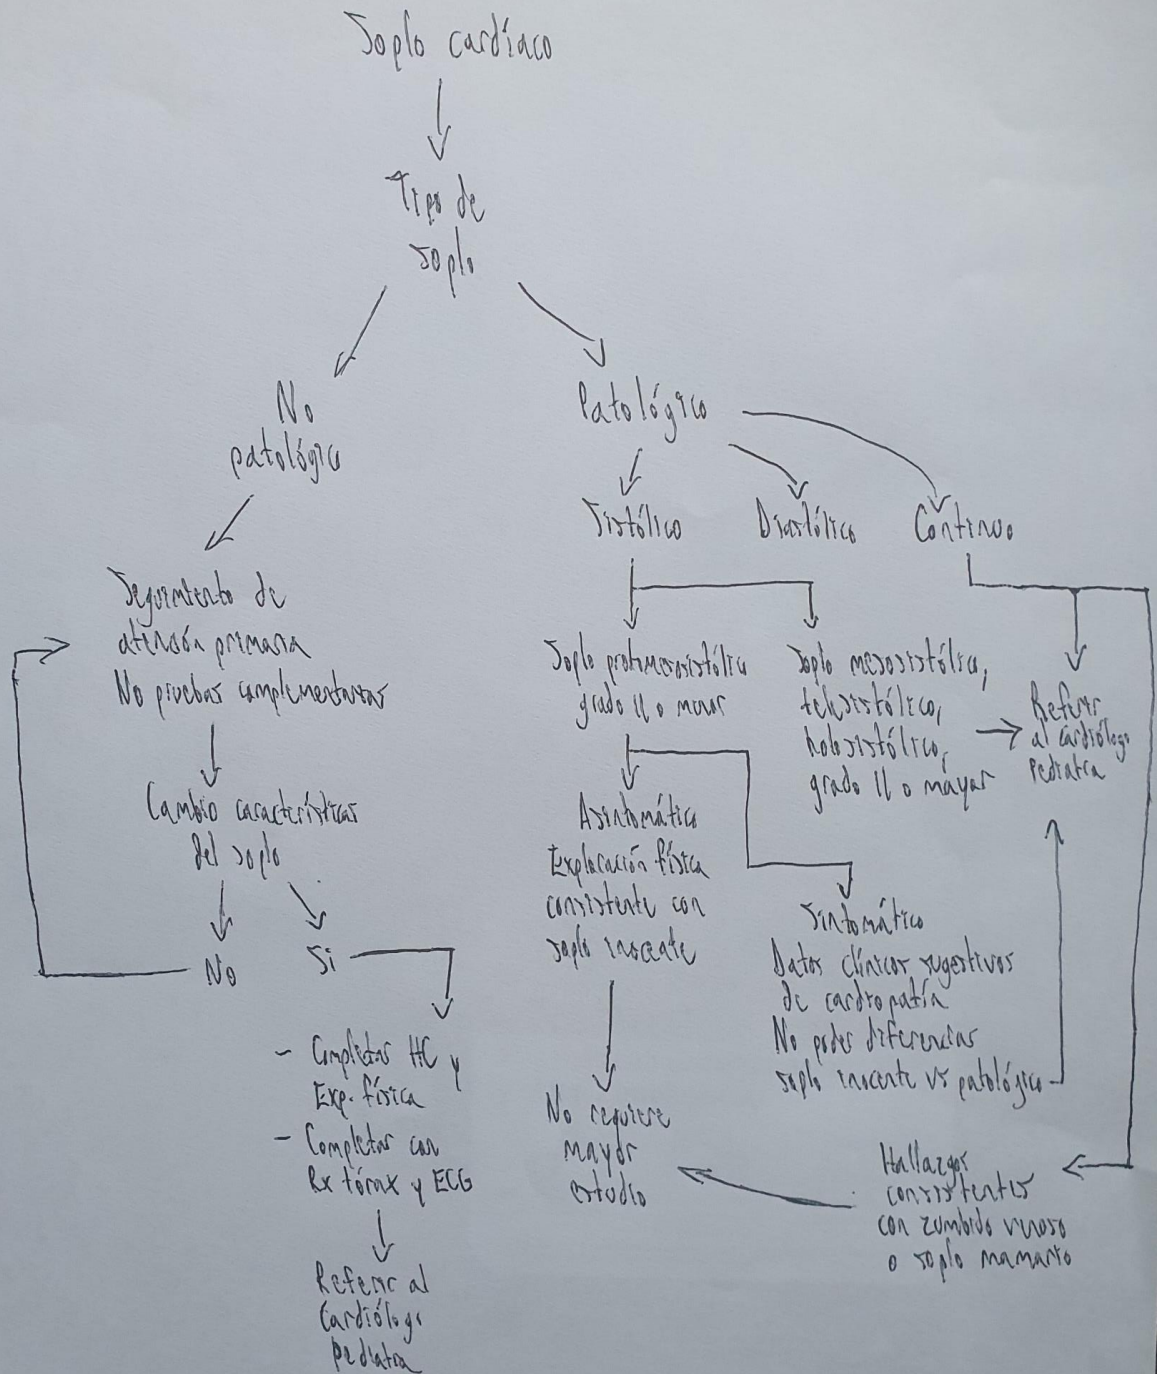 Soplo cardíaco
Tipo de
soplo
No
patológico
Patológico
Sistólico
Diastólico
Continuo
Seguimiento de
atención primaria
No pruebas complementarias
Cambio características
del soplo
No
Si
- Completar HC y
Exp. física
- Completar con
Rx tórax y ECG
Referir al
Cardiólogo
pediatra
Soplo protomesosistólico
grado II o menor
Soplo mesosistólico,
telesistólico,
holosistólico,
grado II o mayor
Referir
al cardiólogo
Pediatra
Asintomático
Exploración física
consistente con
soplo inocente
Sintomático
Datos clínicos sugestivos
de cardiopatía
No poder diferencias
soplo inocente vs patológico
No requiere
mayor
estudio
Hallazgos
consistentes
con zumbido venoso
o soplo mamario